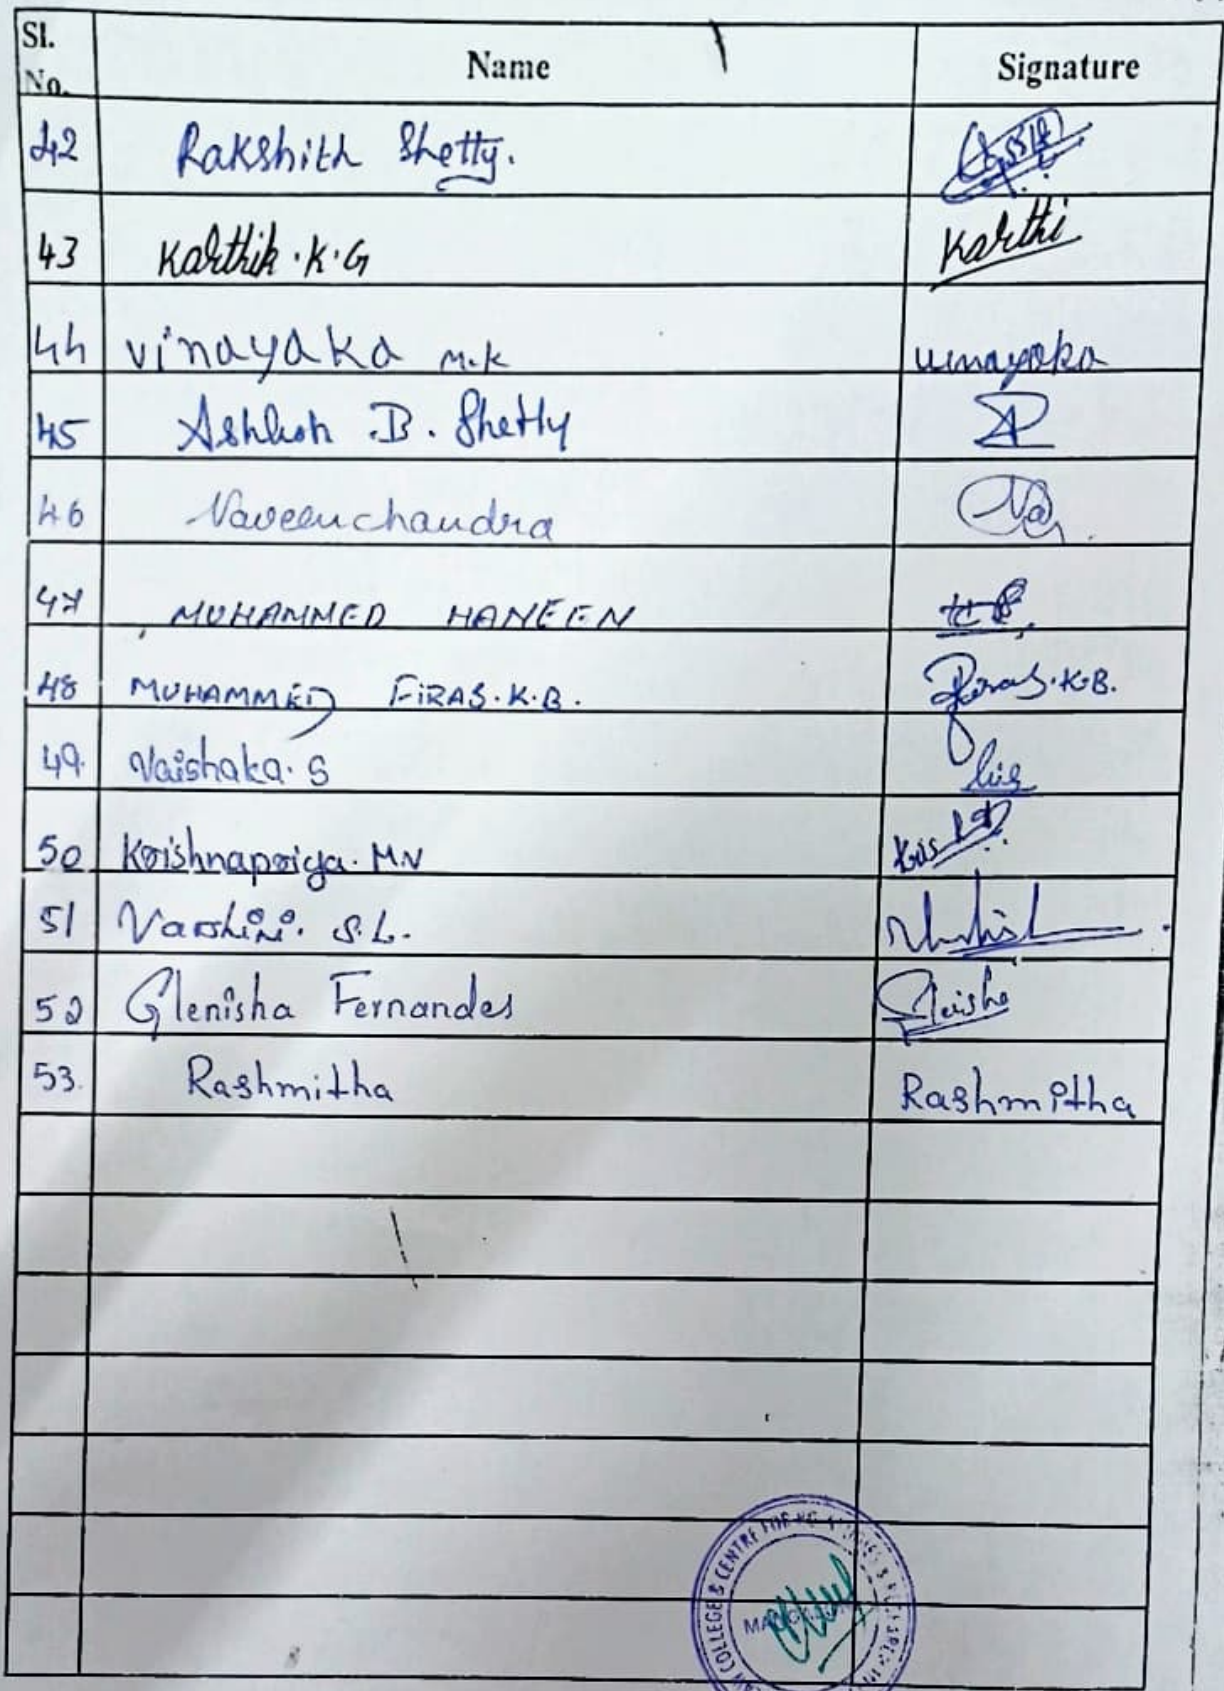 Sl. No. Name Signature
42 Rakshith Shetty.
43 Karthik.K.G Karthi
44 vinayaka M.K vinayaka
45 B. Shetty
46 Naveenchandra Na
47 MUHAMMED HANEEN
48 MUHAMMED FIRAS.K.B. Firas.K.B.
49. Vaishaka.S
50 Krishnapriya.MN Kris
51 Varshini. S.L.
52 Glenisha Fernandes
53. Rashmitha Rashmitha
COLLEGE & CENTRE FOR PG STUDIES &